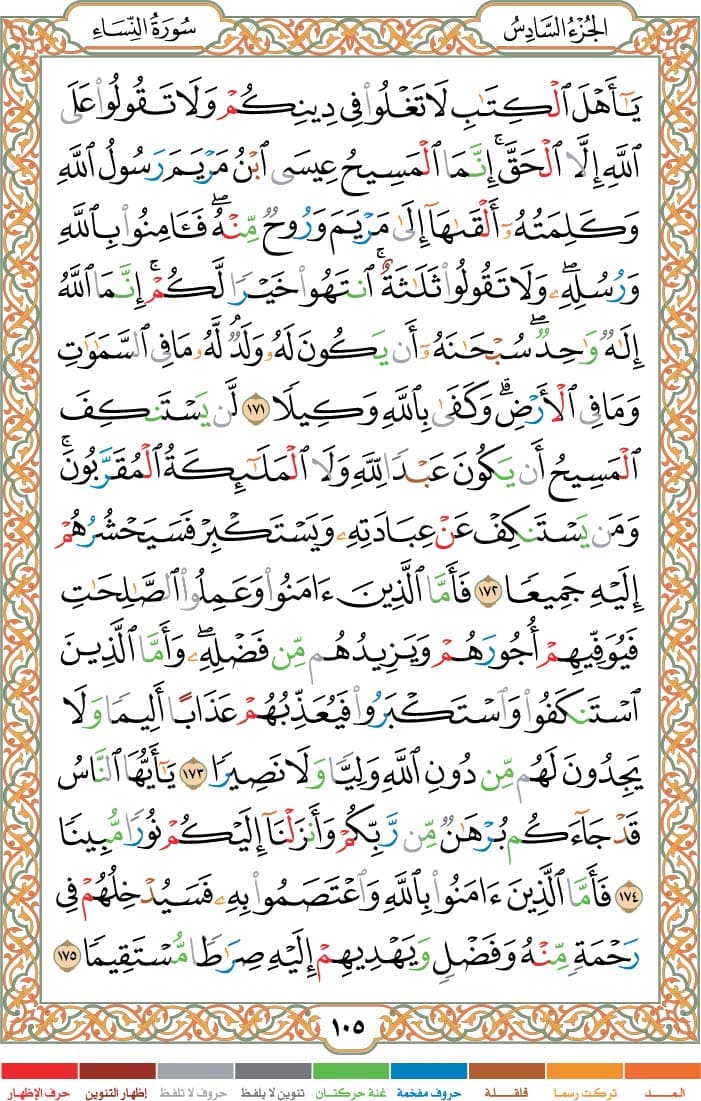 الجُزْءُ السَّادِسُ
سُورَةُ النِّسَاءِ
يَـٰٓأَهْلَ ٱلْكِتَـٰبِ لَا تَغْلُوا۟ فِى دِينِكُمْ وَلَا تَقُولُوا۟ عَلَى
ٱللَّهِ إِلَّا ٱلْحَقَّ ۚ إِنَّمَا ٱلْمَسِيحُ عِيسَى ٱبْنُ مَرْيَمَ رَسُولُ ٱللَّهِ
وَكَلِمَتُهُۥٓ أَلْقَىٰهَآ إِلَىٰ مَرْيَمَ وَرُوحٌ مِّنْهُ ۖ فَـَٔامِنُوا۟ بِٱللَّهِ
وَرُسُلِهِۦ ۖ وَلَا تَقُولُوا۟ ثَلَـٰثَةٌ ۚ ٱنتَهُوا۟ خَيْرًا لَّكُمْ ۚ إِنَّمَا ٱللَّهُ
إِلَـٰهٌ وَٰحِدٌ ۖ سُبْحَـٰنَهُۥٓ أَن يَكُونَ لَهُۥ وَلَدٌ ۘ لَّهُۥ مَا فِى ٱلسَّمَـٰوَٰتِ
وَمَا فِى ٱلْأَرْضِ ۗ وَكَفَىٰ بِٱللَّهِ وَكِيلًا ١٧١ لَّن يَسْتَنكِفَ
ٱلْمَسِيحُ أَن يَكُونَ عَبْدًا لِّلَّهِ وَلَا ٱلْمَلَـٰٓئِكَةُ ٱلْمُقَرَّبُونَ ۚ
وَمَن يَسْتَنكِفْ عَنْ عِبَادَتِهِۦ وَيَسْتَكْبِرْ فَسَيَحْشُرُهُمْ
إِلَيْهِ جَمِيعًا ١٧٢ فَأَمَّا ٱلَّذِينَ ءَامَنُوا۟ وَعَمِلُوا۟ ٱلصَّـٰلِحَـٰتِ
فَيُوَفِّيهِمْ أُجُورَهُمْ وَيَزِيدُهُم مِّن فَضْلِهِۦ ۖ وَأَمَّا ٱلَّذِينَ
ٱسْتَنكَفُوا۟ وَٱسْتَكْبَرُوا۟ فَيُعَذِّبُهُمْ عَذَابًا أَلِيمًا وَلَا
يَجِدُونَ لَهُم مِّن دُونِ ٱللَّهِ وَلِيًّا وَلَا نَصِيرًا ١٧٣ يَـٰٓأَيُّهَا ٱلنَّاسُ
قَدْ جَآءَكُم بُرْهَـٰنٌ مِّن رَّبِّكُمْ وَأَنزَلْنَآ إِلَيْكُمْ نُورًا مُّبِينًا
١٧٤ فَأَمَّا ٱلَّذِينَ ءَامَنُوا۟ بِٱللَّهِ وَٱعْتَصَمُوا۟ بِهِۦ فَسَيُدْخِلُهُمْ فِى
رَحْمَةٍ مِّنْهُ وَفَضْلٍ وَيَهْدِيهِمْ إِلَيْهِ صِرَٰطًا مُّسْتَقِيمًا ١٧٥
١٠٥
المـــد تركت رسما قلقـــلة حروف مفخمة غنة حركتـان تنوين لا يلفظ حروف لا تلفظ إظهار التنوين حرف الإظهار